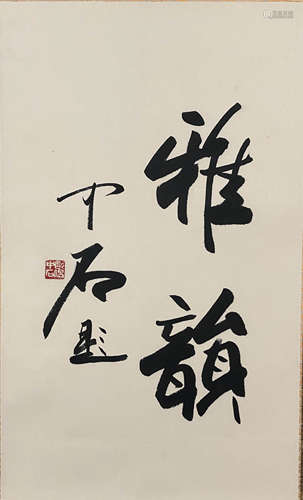 雅韻
中石题